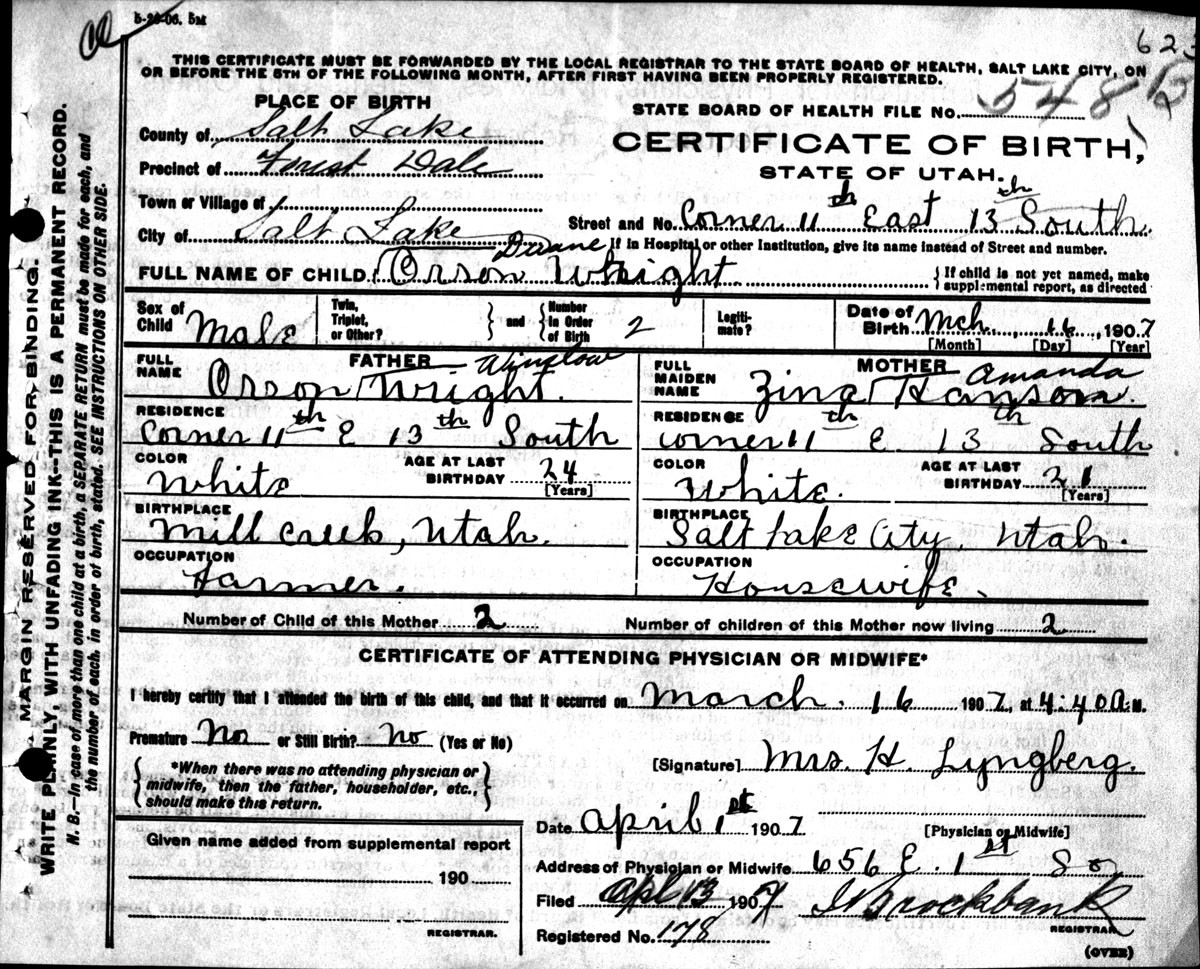 5-29-06. 5M
623
THIS CERTIFICATE MUST BE FORWARDED BY THE LOCAL REGISTRAR TO THE STATE BOARD OF HEALTH, SALT LAKE CITY, ON
OR BEFORE THE 5TH OF THE FOLLOWING MONTH, AFTER FIRST HAVING BEEN PROPERLY REGISTERED.
MARGIN RESERVED FOR BINDING.
WRITE PLAINLY, WITH UNFADING INK--THIS IS A PERMANENT RECORD.
N. B.—In case of more than one child at a birth, a SEPARATE RETURN must be made for each, and
the number of each, in order of birth, stated. SEE INSTRUCTIONS ON OTHER SIDE.
PLACE OF BIRTH
STATE BOARD OF HEALTH FILE No. 548
County of Salt Lake
CERTIFICATE OF BIRTH,
Precinct of Forest Dale
STATE OF UTAH.
Town or Village of
Street and No. Corner 11th East 13th South
City of Salt Lake
If in Hospital or other Institution, give its name instead of Street and number.
FULL NAME OF CHILD Orson Duane Wright
{ If child is not yet named, make
supplemental report, as directed
Sex of Child Male
Twin, Triplet, or Other? } and { Number in Order of Birth 2
Legitimate?
Date of Birth Mch 16 1907
[Month] [Day] [Year]
FATHER
FULL NAME Orson Winslow Wright.
MOTHER
FULL MAIDEN NAME Zina Amanda Hanson.
RESIDENCE
Corner 11th E 13th South
RESIDENCE
corner 11th E. 13th South
COLOR White
AGE AT LAST BIRTHDAY 24
[Years]
COLOR White.
AGE AT LAST BIRTHDAY 21
[Years]
BIRTHPLACE
Mill Creek, Utah.
BIRTHPLACE
Salt Lake City, Utah.
OCCUPATION
Farmer.
OCCUPATION
Housewife.
Number of Child of this Mother 2
Number of children of this Mother now living 2
CERTIFICATE OF ATTENDING PHYSICIAN OR MIDWIFE*
I hereby certify that I attended the birth of this child, and that it occurred on March. 16 1907, at 4:40 A.M.
Premature No or Still Birth? No (Yes or No)
{ *When there was no attending physician or
midwife, then the father, householder, etc.,
should make this return. }
[Signature] Mrs. H. Lyngberg.
Date April 1st 1907
[Physician or Midwife]
Given name added from supplemental report
190
REGISTRAR.
Address of Physician or Midwife 656 E. 1st So
Filed Apl 13 1907
Brockbank
REGISTRAR
Registered No. 178
(OVER)